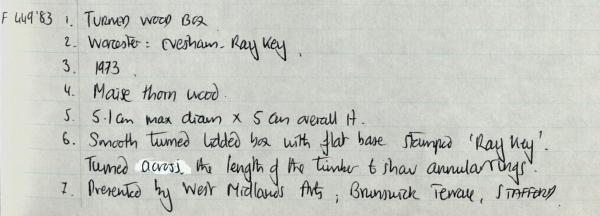 F 449'83 1. TURNED WOOD BOX
2. Worcester: Evesham - Ray Key.
3. 1973
4. Maise thorn wood.
5. 5.1cm max diam x 5 cm overall H.
6. Smooth turned lidded box with flat base stamped 'Ray Key'.
Turned across the length of the timber to show annular rings.
7. Presented by West Midlands Arts, Brunswick Terrace, STAFFORD